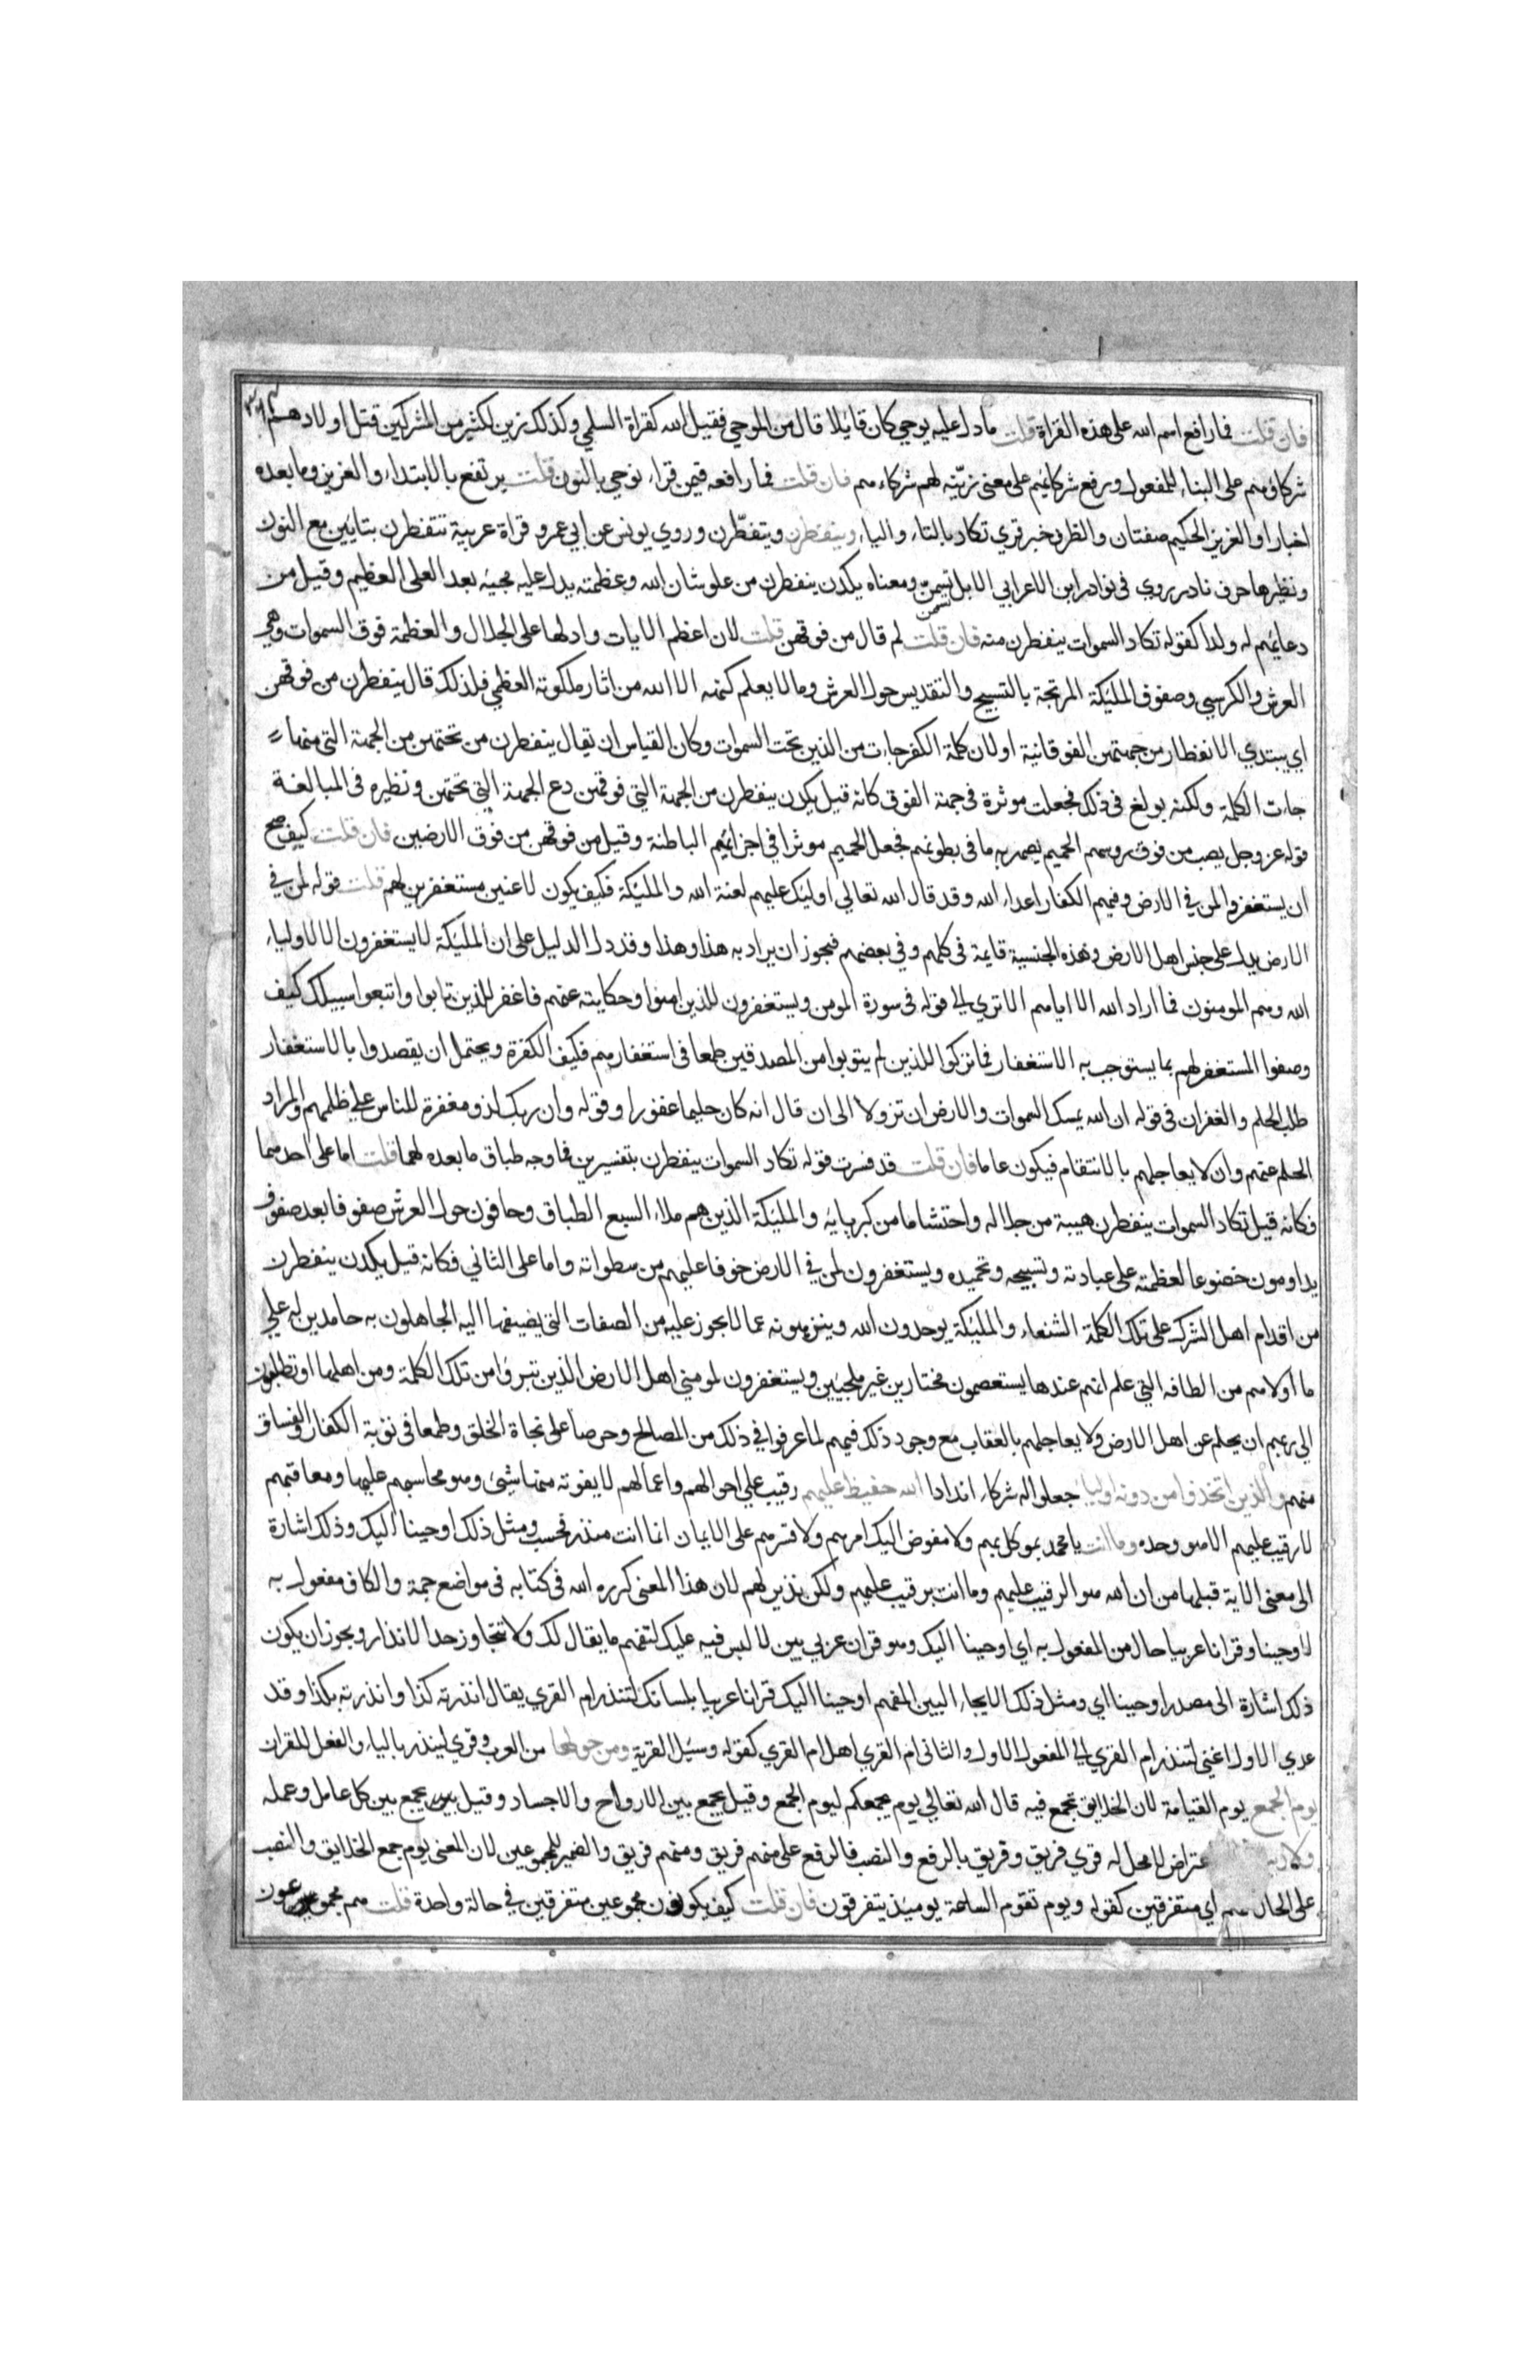 فان قلت فما رافع اسم الله على هذه القراة قلت ما دل عليه يوحي كان قايلا قال من الموحي فقيل الله كقراة السلمي وكذلك زين لكثير من المشركين قتل اولادهم
شركاوهم على البناء للمفعول ورفع شركائهم على معنى زيّنه لهم شركاءهم فان قلت فما رافعه فيمن قراء نوحي بالنون قلت يرتفع بالابتداء والعزيز وما بعده
اخبار او العزيز الحكيم صفتان والظرف خبر قري تكاد بالتاء والياء وينفطرن ويتفطّرن وروي يونس عن ابي عمرو قراة عربية تتفطرن بتايين مع النون
ونظيرها حرف نادر روي فى نوادر ابن الاعرابي الابل تتسممن ومعناه يكدن ينفطرن من علو شان الله وعظمته يدل عليه مجيئه بعد العلى العظيم وقيل من
دعايهم له ولدا كقوله تكاد السموات ينفطرن منه فان قلت لم قال من فوقهن قلت لان اعظم الايات وادلها على الجلال والعظمة فوق السموات وهي
العرش والكرسي وصفوف المليكة المرتجة بالتسبيح والتقديس حول العرش وما لا يعلم كنهه الا الله من اثار ملكوته العظمي فلذلك قال يتفطرن من فوقهن
اي يبتدي الانفطار من جهتهن الفوقانية او لان كلمة الكفر جاءت من الذين تحت السموات وكان القياس ان يقال ينفطرن من تحتهن من الجهة التي منها
جات الكلمة ولكنه بولغ فى ذلك فجعلت موثرة فى جهة الفوق كانه قيل يكدن ينفطرن من الجهة التي فوقهن دع الجهة التي تحتهن ونظيره فى المبالغة
قوله عز وجل يصب من فوق روسهم الحميم يصهر به ما فى بطونهم فجعل الحميم موثرا في اجزائهم الباطنة وقيل من فوقهن من فوق الارضين فان قلت كيف صح
ان يستغفروا لمن في الارض وفيهم الكفار اعداء الله وقد قال الله تعالي اوليك عليهم لعنة الله والمليكة فكيف يكون لاعنين مستغفرين لهم قلت قوله لمن في
الارض يدل على جنس اهل الارض وهذه الجنسية قايمة فى كلهم وفي بعضهم فيجوز ان يراد به هذا وهذا وقد دل الدليل على ان المليكة لا يستغفرون الا لاولياء
الله وهم المومنون فما اراد الله الا اياهم الا تري الي قوله فى سورة المومن ويستغفرون للذين امنوا وحكايته عنهم فاغفر للذين تابوا واتبعوا سبيلك كيف
وصفوا المستغفر لهم بما يستوجب به الاستغفار فما تركوا للذين لم يتوبوا من المصدقين طمعا فى استغفارهم فكيف الكفرة ويحتمل ان يقصدوا بالاستغفار
طلب الحلم والغفران فى قوله ان الله يمسك السموات والارض ان تزولا الى ان قال انه كان حليما غفورا وقوله وان ربك لذو مغفرة للناس على ظلمهم والمراد
الحلم عنهم وان لا يعاجلهم بالانتقام فيكون عاما فان قلت قد فسرت قوله تكاد السموات ينفطرن بتفسيرين فما وجه طباق ما بعده لهما قلت اما على احدهما
فكانه قيل تكاد السموات ينفطرن هيبة من جلاله واحتشاما من كبريايه والمليكة الذين هم ملاء السبع الطباق وحافون حول العرش صفوفا بعد صفوف
يداومون خضوعا لعظمته على عبادته وتسبيحه وتحميده ويستغفرون لمن في الارض خوفا عليهم من سطواته واما على الثاني فكانه قيل يكدن ينفطرن
من اقدام اهل الشرك على تلك الكلمة الشنعاء والمليكة يوحدون الله وينزهونه عما لا يجوز عليه من الصفات التي يضيفها اليه الجاهلون به حامدين له علي
ما اولاهم من الطافه التي علم انهم عندها يستعصمون مختارين غير ملجيين ويستغفرون لمومني اهل الارض الذين تبروا من تلك الكلمة ومن اهلها او يطلبون
الى ربهم ان يحلم عن اهل الارض ولا يعاجلهم بالعقاب مع وجود ذلك فيهم لما عرفوا في ذلك من المصالح وحرصا على نجاة الخلق وطمعا فى توبة الكفار والفساق
منهم والذين اتخذوا من دونه اولياء جعلوا له شركاء اندادا الله حفيظ عليهم رقيب علي احوالهم واعمالهم لا يفوته منها شيئ وهو محاسبهم عليها ومعاقبهم
لا رقيب عليهم الا هو وحده وما انت يا محمد بموكل بهم ولا مفوض اليك امرهم ولا قسرهم على الايمان انما انت منذر فحسب ومثل ذلك اوحينا اليك وذلك اشارة
الى معنى الاية قبلها من ان الله هو الرقيب عليهم وما انت برقيب عليهم ولكن نذير لهم لان هذا المعنى كرره الله فى كتابه فى مواضع جمة والكاف مفعول به
لاوحينا وقرانا عربيا حال من المفعول به اي اوحينا اليك وهو قران عربي بين لا لبس فيه عليك لتفهم ما يقال لك ولا تتجاوز حد الانذار ويجوز ان يكون
ذلك اشارة الى مصدر اوحينا اي ومثل ذلك الايحاء البين المفهم اوحينا اليك قرانا عربيا بلسانك لتنذر ام القري يقال انذرته كذا وانذرته بكذا وقد
عدي الاول اعني لتنذر ام القري الي المفعول الاول والثاني ام القري اهل ام القري كقوله وسيل القرية ومن حولها من العرب وقري لينذر بالياء والفعل للقران
يوم الجمع يوم القيامة لان الخلايق تجمع فيه قال الله تعالي يوم يجمعكم ليوم الجمع وقيل يجمع بين الارواح والاجساد وقيل يجمع بين كل عامل وعمله
ولا ريب اعتراض لا محل له قري فريق وفريق بالرفع والنصب فالرفع على منهم فريق ومنهم فريق والضمير للمجموعين لان المعنى يوم جمع الخلايق والنصب
على الحال منهم اي متفرقين كقوله ويوم تقوم الساعة يوميذ يتفرقون فان قلت كيف يكونون مجموعين متفرقين في حالة واحدة قلت هم مجموعون